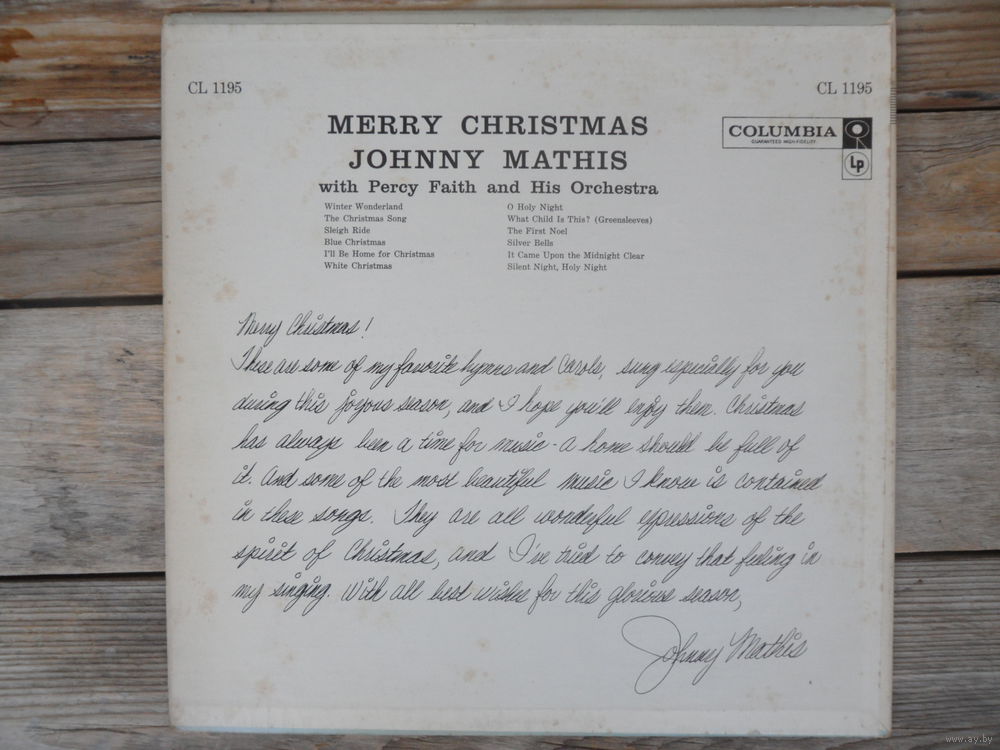 CL 1195
CL 1195
MERRY CHRISTMAS
JOHNNY MATHIS
with Percy Faith and His Orchestra
COLUMBIA
GUARANTEED HIGH-FIDELITY
Lp
Winter Wonderland
The Christmas Song
Sleigh Ride
Blue Christmas
I'll Be Home for Christmas
White Christmas
O Holy Night
What Child Is This? (Greensleeves)
The First Noel
Silver Bells
It Came Upon the Midnight Clear
Silent Night, Holy Night
Merry Christmas!
These are some of my favorite hymns and Carols, sung especially for you
during this joyous season, and I hope you'll enjoy them. Christmas
has always been a time for music - a home should be full of
it. And some of the most beautiful music I know is contained
in these songs. They are all wonderful expressions of the
spirit of Christmas, and I've tried to convey that feeling in
my singing. With all best wishes for this glorious season,
Johnny Mathis
www.ay.by